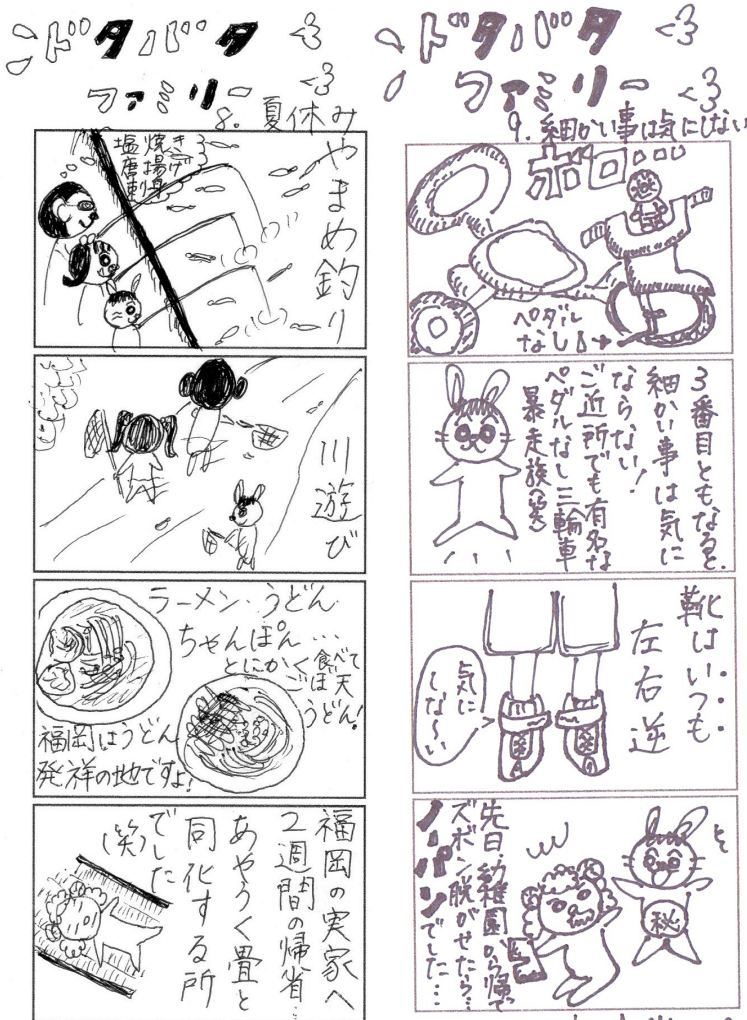 ドタバタ
ファミリー
8. 夏休み
やまめ釣り
塩焼き
唐揚げ
刺身
川遊び
ラーメン・うどん
ちゃんぽん…
とにかく食べて
ごぼ天
うどん!
福岡はうどん
発祥の地ですよ!
福岡の実家へ
2週間の帰省…
あやうく畳と
同化する所
でした
(笑)
ドタバタ
ファミリー
9. 細かい事は気にしない
ボロ…
ペダル
なし
3番目ともなると、
細かい事は気に
ならない!
ご近所でも有名な
ペダルなし三輪車
暴走族(笑)
靴はいつも
左右逆
気に
しな〜い
先日、幼稚園から帰って
ズボン脱がせたら…
ノーパンでした…
秘